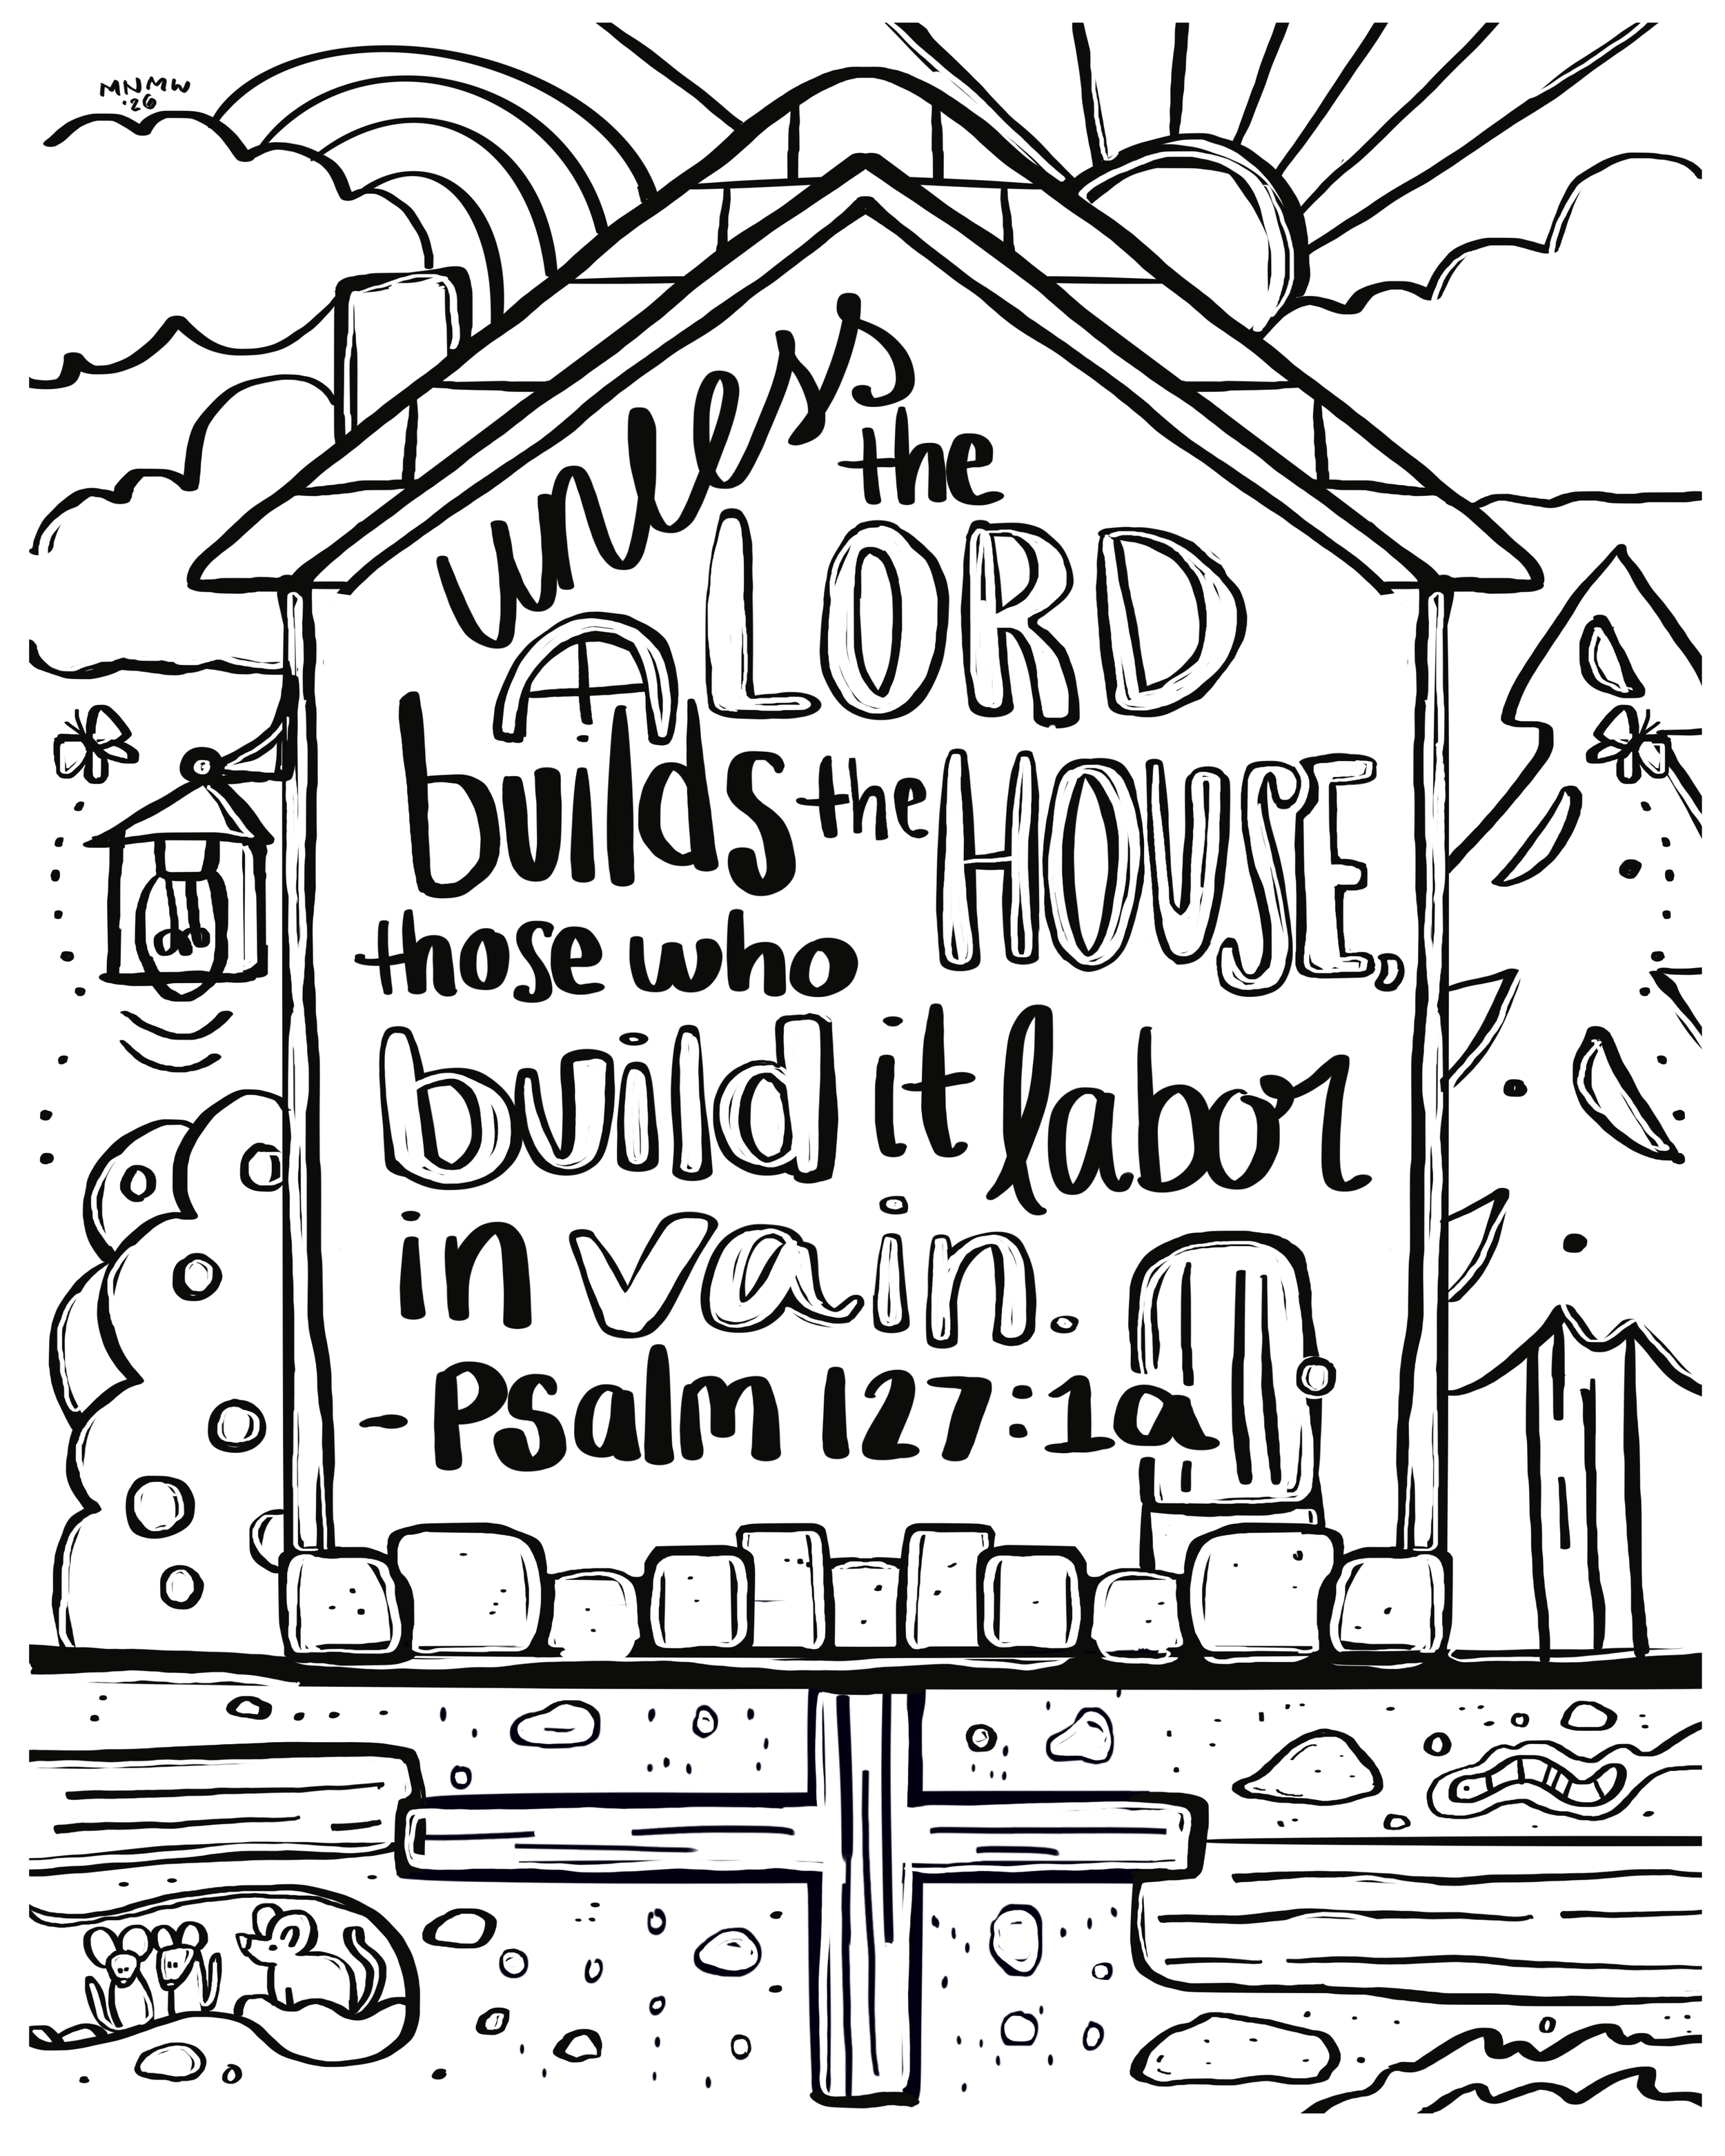 MNMW
'26
unless
the
LORD
builds the HOUSE,
those who
build it labor
in vain.
- Psalm 127:1a